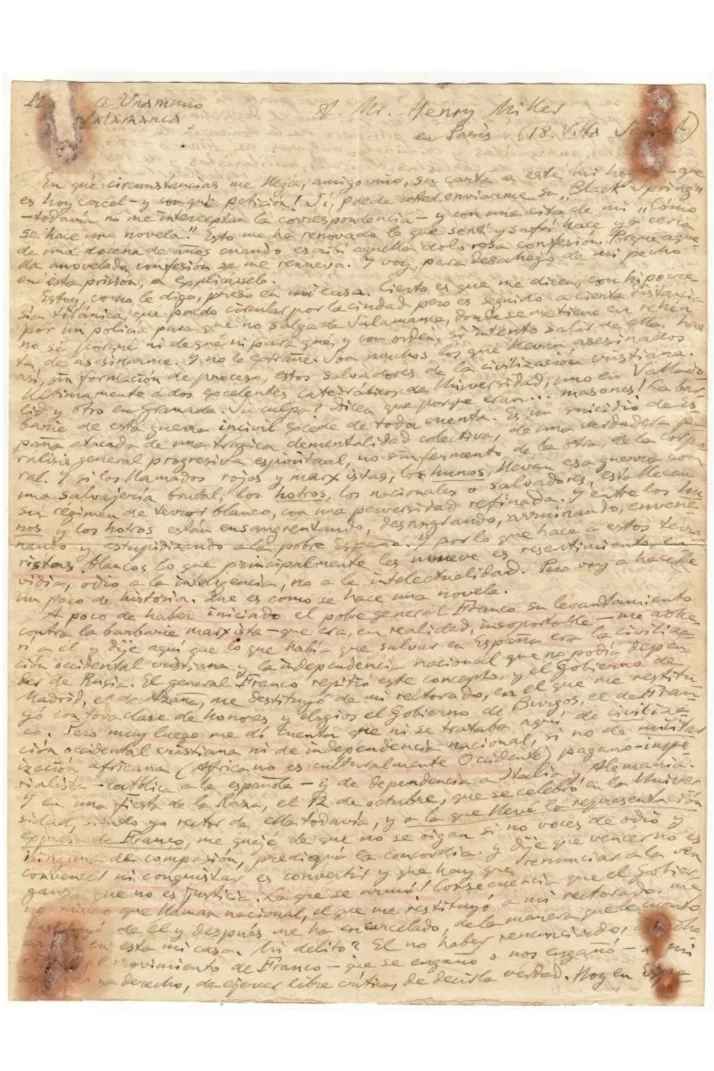 de Unamuno A Mr. Henry Miller
Salamanca en París (18. Villa
En qué circunstancias me llega, amigo mío, su carta a este mi que
es hoy carcel - y con qué petición! Sí, puede usted enviarme su "Black Spring"
- todavía no me interceptan la correspondencia - y con una cita de mi "Cómo
se hace una novela". Esto me ha renovado lo que sentí y sufrí hace ya cerca
de una docena de años cuando escribí aquella dolorosa confesión. Porque aque
lla anovelada confesión se me renueva. Y voy, para desahogo de mi pecho
en esta prisión, a explicárselo.
Estoy, como le digo, preso en mi casa. Cierto es que me dicen, con hipocre
sía que puedo circular por la ciudad pero es seguido a cierta distancia
por un policía para que no salga de Salamanca, donde se me tiene en rehén
no sé porqué ni de qué ni para qué, y con orden, si intento salir de ella, has
ta de asesinarme. Y no le extrañe. Son muchos los que llevan asesinados
así, sin formación de proceso, estos salvadores de la civilización cristiana.
Ultimamente a dos excelentes catedráticos de Universidad, uno en Vallado
lid y otro en Granada. Su culpa? Dicen que porque eran... masones! La bar
barie de esta guerra incivil excede de toda cuenta. Es un suicidio de Es
paña atacada de una trágica dementalidad colectiva, de una verdadera pa
rálisis general progresiva espiritual, no sin fermento de la otra, de la corpo
ral. Y si los llamados rojos y marxistas, los hunos, llevan esa guerra con
una salvajería brutal, los hotros, los nacionales o salvadores, esta llevan
su régimen de terror blanco, con una perversidad refinada. Y entre los hu
nos y los hotros están ensangrentando, desangrando, arruinando, envene
nando y estupidizando a la pobre España. Y por lo que hace a estos terro
ristas blancos lo que principalmente les mueve es resentimiento, en
vidia, odio a la inteligencia, no a la intelectualidad. Pero voy a hacerle
un poco de historia. Que es como se hace una novela.
A poco de haber iniciado el pobre general Franco su levantamiento
contra la barbarie marxista - que era, en realidad, insoportable - me adhe
rí a él y dije aquí que lo que había que salvar en España era la civiliza
ción occidental cristiana y la independencia nacional que no podía depen
der de Rusia. El general Franco repitió este concepto, y el Gobierno de
Madrid, el de Azaña, me destituyó de mi rectorado, en el que me restitu
yó con toda clase de honores y elogios el Gobierno de Burgos, el de Fran
co. Pero muy luego me dí cuenta que ni se trataba aquí de civiliza
ción occidental cristiana ni de independencia nacional, si no de militar
ización africana (Africa no es culturalmente Occidente) pagano-impe
rialista - católica a la española - y de dependencia a Italia y Alemania.
Y en una fiesta de la Raza, el 12 de octubre, que se celebró en la Univer
sidad, siendo yo rector de ella todavía, y a la que llevé la representación
expresa de Franco, me quejé de que no se oigan si no voces de odio y
ninguna de compasión, prediqué la concordia y dije que vencer no es
convencer ni conquistar es convertir y que hay que renunciar a la ven
ganza que no es justicia. La que se armó! Consecuencia que el Gobier
no que llaman nacional, el que me restituyó a mi rectorado, me
de él y después me ha encarcelado, de la manera que le cuento
en esta mi casa. Mi delito? El no haber renunciado,
movimiento de Franco - que se engañó o nos engañó - a mi
derecho, de ejercer libre crítica, de decir la verdad. Hoy en Espa